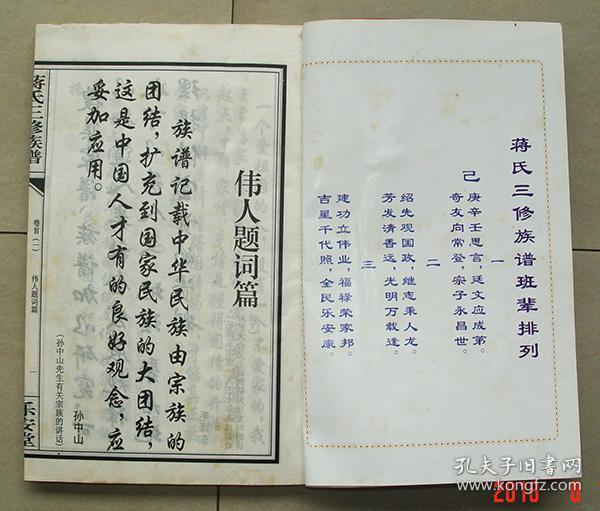 蒋氏三修族谱班辈排列
一
己
庚辛壬思言，廷文应成第。
奇友向常登，宗子永昌世。
二
绍先观国政，继志秉人龙。
芳发清香远，光明万载逢。
三
建功立伟业，福禄荣家邦。
吉星千代照，全民乐安康。
伟人题词篇
族谱记载中华民族由宗族的
团结，扩充到国家民族的大团结，
这是中国人才有的良好观念，应
妥加应用。
孙中山
（孙中山先生有关宗族的讲话）
蒋氏三修族谱
卷首（一）
伟人题词篇
一
乐安堂
孔夫子旧书网
www.kongfz.com